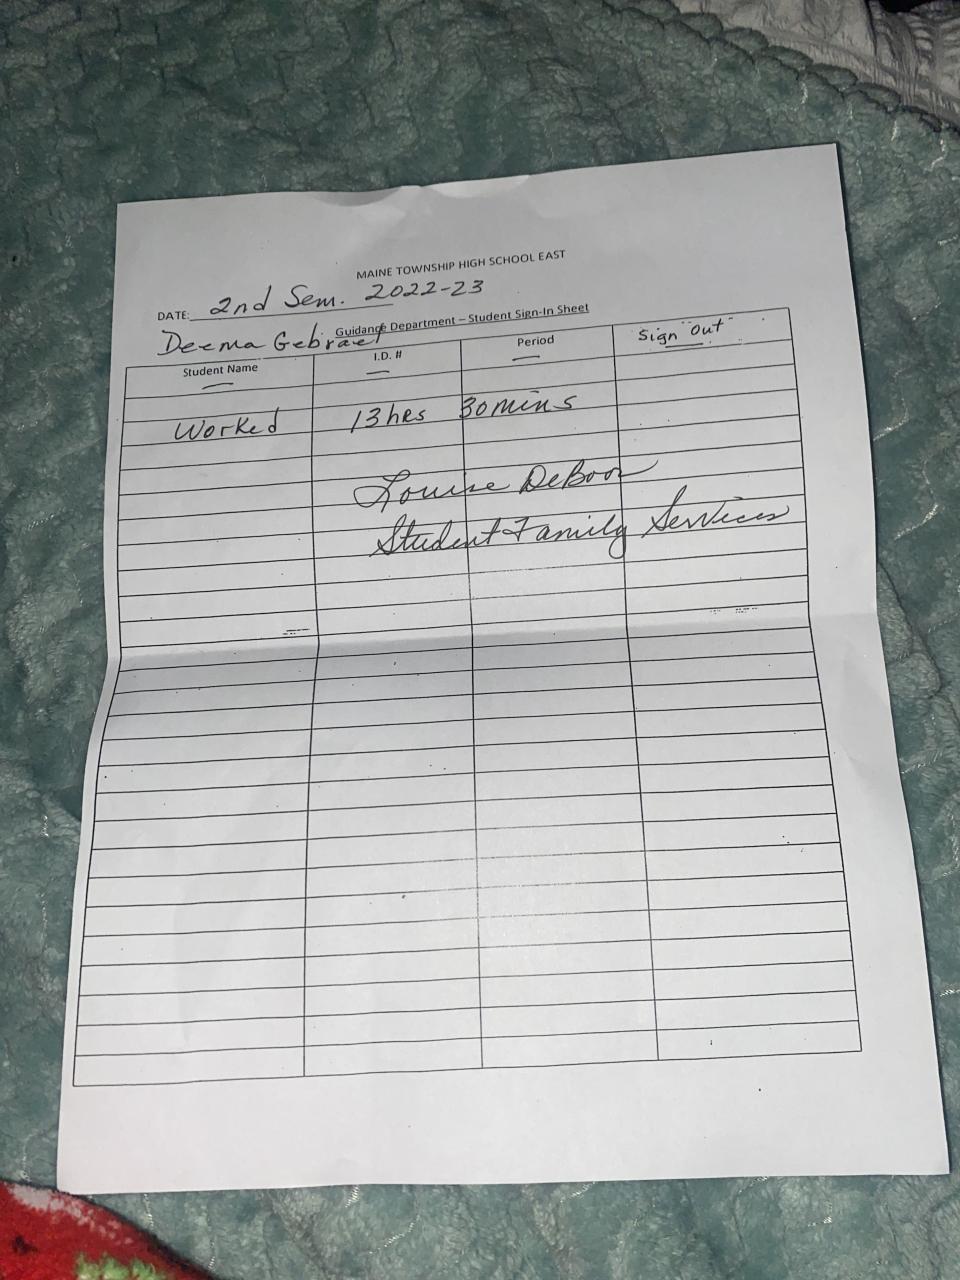 MAINE TOWNSHIP HIGH SCHOOL EAST
DATE: 2nd Sem. 2022-23
Guidance Department – Student Sign-In Sheet
Deema Gebrael
Student Name I.D. # Period Sign Out
Worked 13 hrs 30 mins
Louise DeBoor
Student Family Services